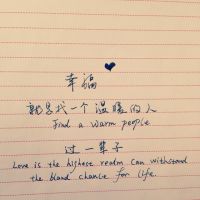 幸福
就是找一个温暖的人
Find a warm people
过一辈子
Love is the highest realm can withstand
the bland chance for life.